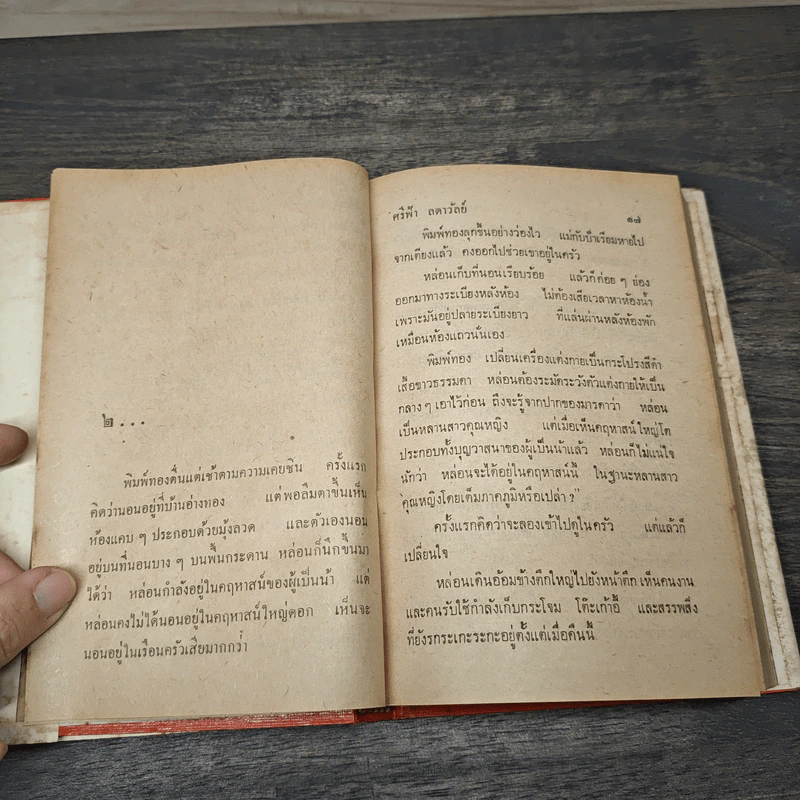 ๒...
พิมพ์ทองตื่นแต่เช้าตามความเคยชิน ครั้งแรก
คิดว่านอนอยู่ที่บ้านอ่างทอง แต่พอลืมตาขึ้นเห็น
ห้องแคบ ๆ ประกอบด้วยมุ้งลวด และตัวเองนอน
อยู่บนที่นอนบาง ๆ บนพื้นกระดาน หล่อนก็นึกขึ้นมา
ได้ว่า หล่อนกำลังอยู่ในคฤหาสน์ของผู้เป็นน้า แต่
หล่อนคงไม่ได้นอนอยู่ในคฤหาสน์ใหญ่ดอก เห็นจะ
นอนอยู่ในเรือนครัวเสียมากกว่า
ศรีฟ้า ลดาวัลย์ ๑๗
พิมพ์ทองลุกขึ้นอย่างว่องไว แม่กับป้าเรียมหายไป
จากเตียงแล้ว คงออกไปช่วยเขาอยู่ในครัว
หล่อนเก็บที่นอนเรียบร้อย แล้วก็ค่อย ๆ ย่อง
ออกมาทางระเบียงหลังห้อง ไม่ต้องเสียเวลาหาห้องน้ำ
เพราะมันอยู่ปลายระเบียงยาว ที่แล่นผ่านหลังห้องพัก
เหมือนห้องแถวนั่นเอง
พิมพ์ทอง เปลี่ยนเครื่องแต่งกายเป็นกระโปรงสีดำ
เสื้อขาวธรรมดา หล่อนต้องระมัดระวังตัวแต่งกายให้เป็น
กลาง ๆ เอาไว้ก่อน ถึงจะรู้จากปากของมารดาว่า หล่อน
เป็นหลานสาวคุณหญิง แต่เมื่อเห็นคฤหาสน์ใหญ่โต
ประกอบทั้งบุญวาสนาของผู้เป็นน้าแล้ว หล่อนก็ไม่แน่ใจ
นักว่า หล่อนจะได้อยู่ในคฤหาสน์นี้ ในฐานะหลานสาว
คุณหญิงโดยเต็มภาคภูมิหรือเปล่า?"
ครั้งแรกคิดว่าจะลองเข้าไปดูในครัว แต่แล้วก็
เปลี่ยนใจ
หล่อนเดินอ้อมข้างตึกใหญ่ไปยังหน้าตึก เห็นคนงาน
และคนรับใช้กำลังเก็บกระโจม โต๊ะเก้าอี้ และสรรพสิ่ง
ที่ยังรกระเกะระกะอยู่ตั้งแต่เมื่อคืนนี้